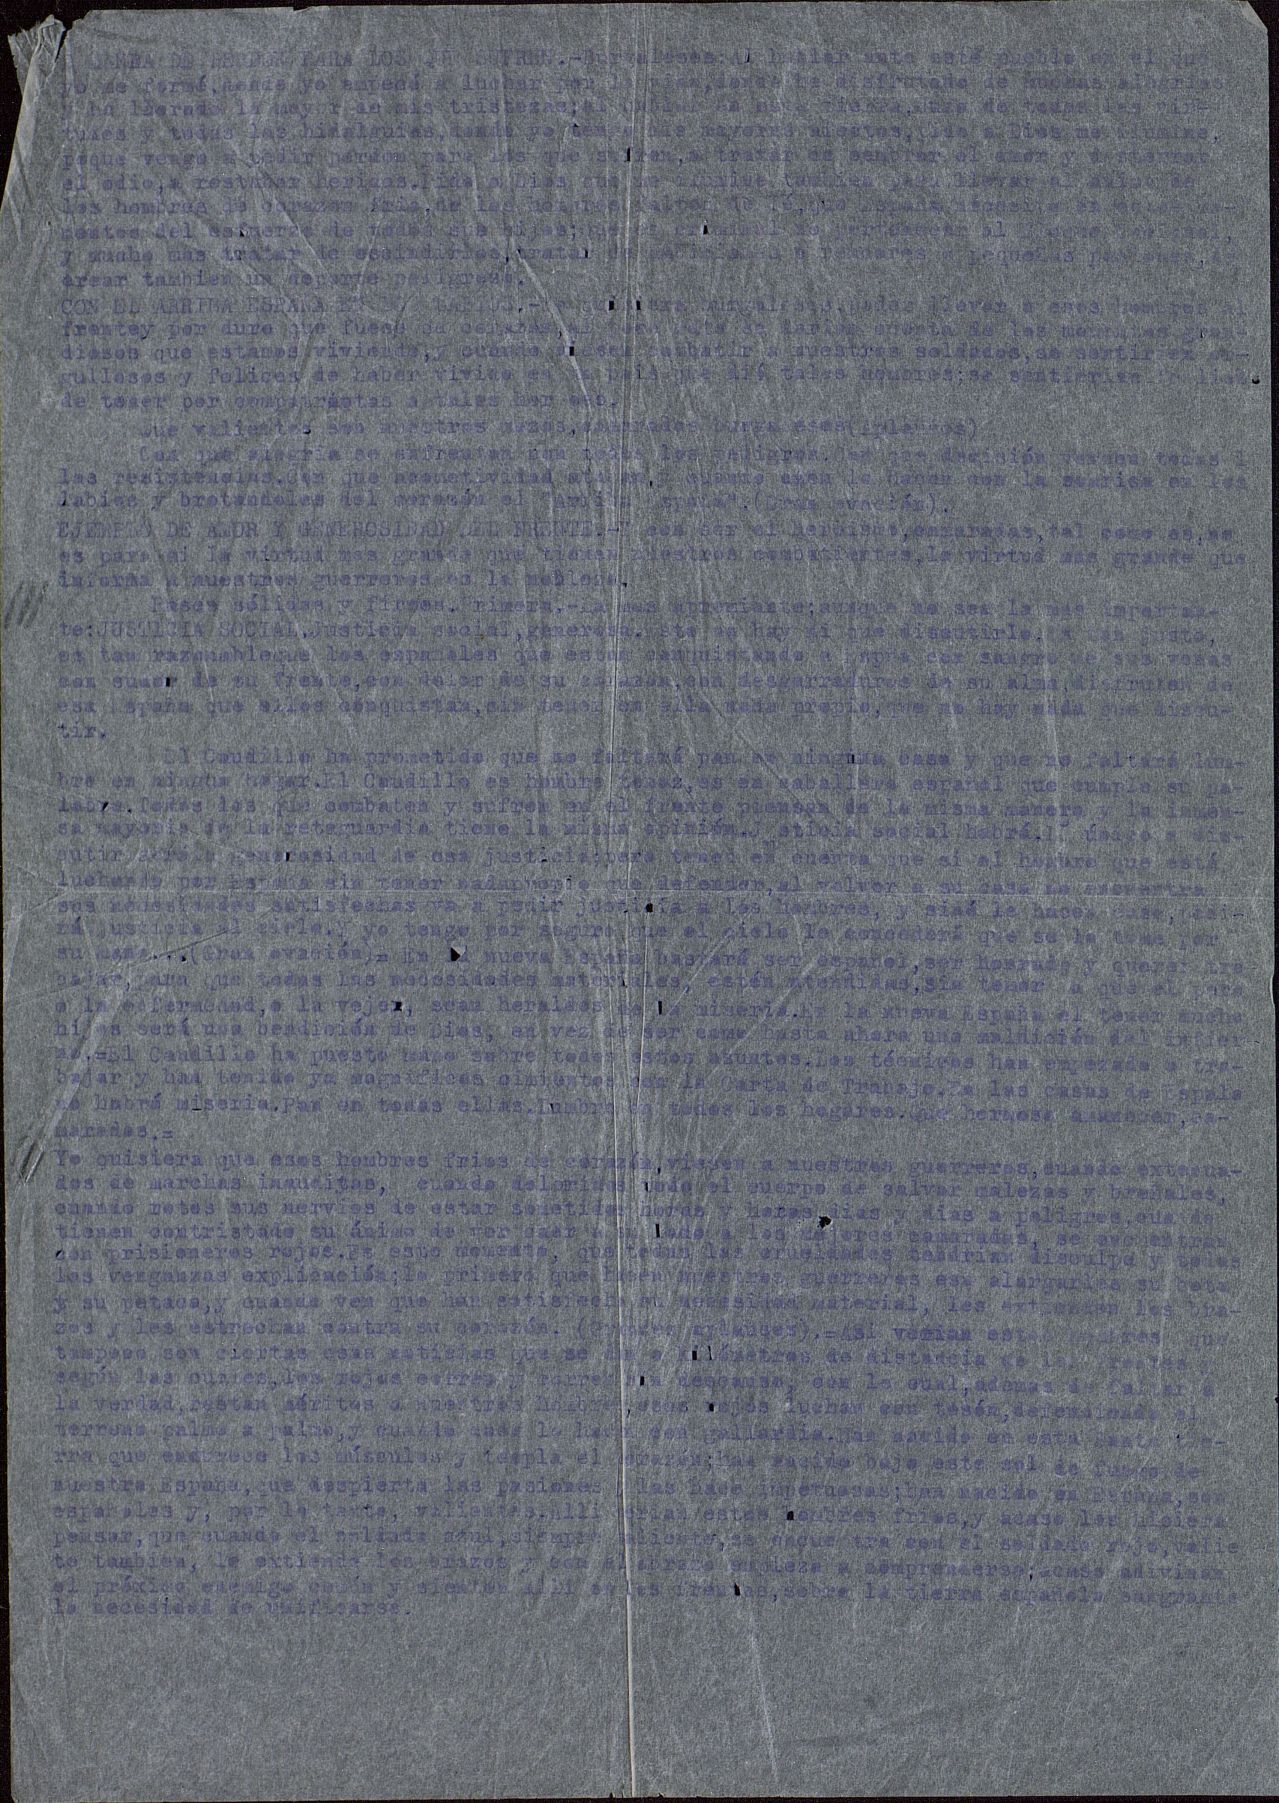 PARA LOS QUE SUFREN.-Burgaleses:Al hablar ante esté pueblo en el que
yo me formé,donde yo empecé a luchar por la vida,donde he disfrutado de muchas alegrias
y he llorado la mayor de mis tristezas;al hablar en esta tierra, de todas las vir-
tudes y todas las hidalguias,donde yo tengo mis mayores afectos,pido a Dios me ilumine,
poque vengo a pedir perdon para los que sufren,a tratar de sembrar el amor y desterrar
el odio,a restañar heridas.Pido a Dios que me ilumine tambien para llevar al ánimo de
los hombres de corazon frio,de los hombres faltos de fé,que España necesita en estos mo-
mentos del esfuerzo de todos sus hijos;
y mucho mas tratar de escindirlos,tratar de o rencores o pequeñas pasiones,es
crear tambien un deporte peligroso.
CON EL ARRIBA ESPAÑA EN LOS LABIOS.-Yo quisiera burgaleses,poder llevar a esos hombres al
frentey por duro que fuese su corazon, se darian cuenta de los momentos gran-
diosos que estamos viviendo,y cuando viesen combatir a nuestros soldados,se sentirian or-
gullosos y felices de haber vivido en un pais que dió tales hombres;se sentirian
de tener por compatriotas a tales heroes.
Que valientes son nuestros mozos,camaradas burgaleses(Aplausos)
Con que alegria se enfrentan con todos los peligros.Con que decisión vencen todas l
las resistencias.Con que acometividad atacan,y cuando caen lo hacen con la sonrisa en los
labios y brotandoles del corazón el "Arriba España".(Gran ovación).
EJEMPLO DE AMOR Y GENEROSIDAD DEL FRENTE.-Y con ser el heroismo,camaradas,tal como es,no
es para mi la virtud mas grande que tienen nuestros combatientes.La virtud mas grande que
informa a nuestros guerreros es la nobleza.
Pasos sólidos y firmes.Primero.-La mas apremiante;aunque no sea la mas importan-
te:JUSTICIA SOCIAL.Justicia social,generosa.Esto no hay ni que discutirlo.Es tan justo,
es tan razonableque los españoles que estan conquistando a España con sangre de sus venas
con sudor de su frente,con dolor de su corazon,con desgarraduras de su alma,disfruten de
esa España que ellos conquistan,sin tener en ella nada propio,que no hay nada que discu-
tir.
El Caudillo ha prometido que no faltará pan en ninguna casa y que no faltará lum-
bre en ningun hogar.El Caudillo es hombre tenaz,es en caballero español que cumple su pa-
labra.Todos los que combaten y sufren en el frente piensan de la misma manera y la inmen-
sa mayoria de la retaguardia tiene la misma opinión.Justicia social habrá.Lo único a dis-
cutir será la generosidad de esa justicia;pero tened en cuenta que si el hombre que está
luchando por España sin tener nadapropio que defender,al volver a su casa no encuentra
sus necesidades satisfechas va a pedir justicia a los hombres, y sinó le hacen caso, pedi-
rá justicia al cielo.Y yo tengo por seguro que el cielo le concederá que se la tome por
su mano...(Gran ovación)= En la nueva España bastará ser español,ser honrado y querer tra
bajar,para que todas las necesidades materiales, estén atendidas,sin temor a que el paro
o la enfermedad,o la vejez, sean heraldos de la miseria.En la nueva España el tener mucho
hijos será una bendición de Dios, en vez de ser como hasta ahora una maldición del infier
no.=El Caudillo ha puesto mano sobre todos estos asuntos.Los técnicos han empezado a tra-
bajar y han tenido ya magnificos cimientos con la Carta de Trabajo.En las casas de España
no habrá miseria.Pan en todas ellas.Lumbre en todos los hogares.Que hermoso amanecer,ca-
maradas.=
Yo quisiera que esos hombres frios de corazón,viesen a nuestros guerreros,cuando extenua-
dos de marchas inauditas, cuando doloridos todo el cuerpo de salvar malezas y breñales,
cuando rotos sus nervios de estar sometidos horas y horas,dias y dias a peligros,cuando
tienen contristado su ánimo de ver caer a su lado a los mejores camaradas, se encuentran
con prisioneros rojos.En esto momento, que todas las crueldades tendrian disculpa y todas
las venganzas explicación;lo primero que hacen nuestros guerreros esa alargarles su bota
y su petaca,y cuando ven que han satisfecho su necesidad material, les extienden los bra-
zos y les estrechan contra su corazón. (Grandes aplausos).=Asi verian estos hombres que
tampoco son ciertas esas noticias que se dan a kilómetros de distancia de los frentes y
según las cuales,los rojos corren y corren sin descanso, con lo cual,ademas de faltar a
la verdad,restan méritos a nuestros hombres,esos rojos luchan con tesón,defendiendo el
terreno palmo a palmo,y cuando caen lo hacen con gallardia.Han nacido en esta santa tie-
rra que endurece los músculos y templa el corazón;han nacido bajo este sol de fuego de
nuestra España,que despierta las pasiones y las hace impetuosas;han nacido en España,son
españoles y, por lo tanto, valientes.Alli verian estos hombres frios,y acaso les hiciera
pensar,que cuando el soldado azul,siempre valiente,se encuentra con el soldado rojo,valie
te tambien, le extiende los brazos y con el abrazo empieza a comprenderse,acaso adivinan
el próximo enemigo común y sienten alli en los frentes,sobre la tierra española sangrante
la necesidad de unificarse.